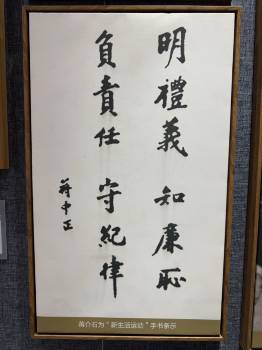 明禮義 知廉恥
負責任 守紀律
蔣中正
蒋介石为“新生活运动”手书条示